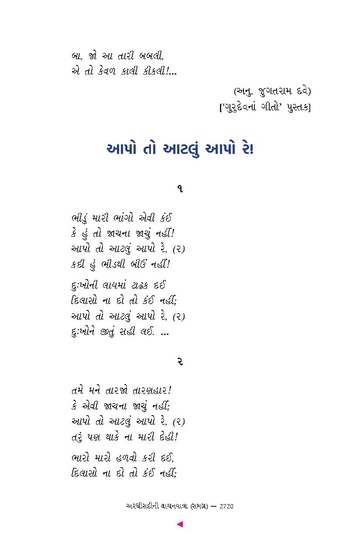 બા, જો આ તારી બબલી,
એ તો કેવળ કાલી કીકલી!...
(અનુ. જુગતરામ દવે)
['ગુરુદેવનાં ગીતો' પુસ્તક]
આપો તો આટલું આપો રે!
૧
ભીડું મારી ભાંગો એવી કંઈ
કે હું તો જાચના જાચું નહીં!
આપો તો આટલું આપો રે, (૨)
કદી હું ભીડથી બીઉં નહીં!
દુઃખોની લાયમાં ટાઢક દઈ
દિલાસો ના દો તો કંઈ નહીં;
આપો તો આટલું આપો રે, (૨)
દુઃખોને જીતું સહી લઈ. ...
૨
તમે મને તારજો તારણહાર!
કે એવી જાચના જાચું નહીં;
આપો તો આટલું આપો રે, (૨)
તરું પણ થાકે ના મારી દેહી!
ભારો મારો હળવો કરી દઈ,
દિલાસો ના દો તો કંઈ નહીં;
અરધીસદીની વાચનયાત્રા (સમગ્ર) — 2720
◄